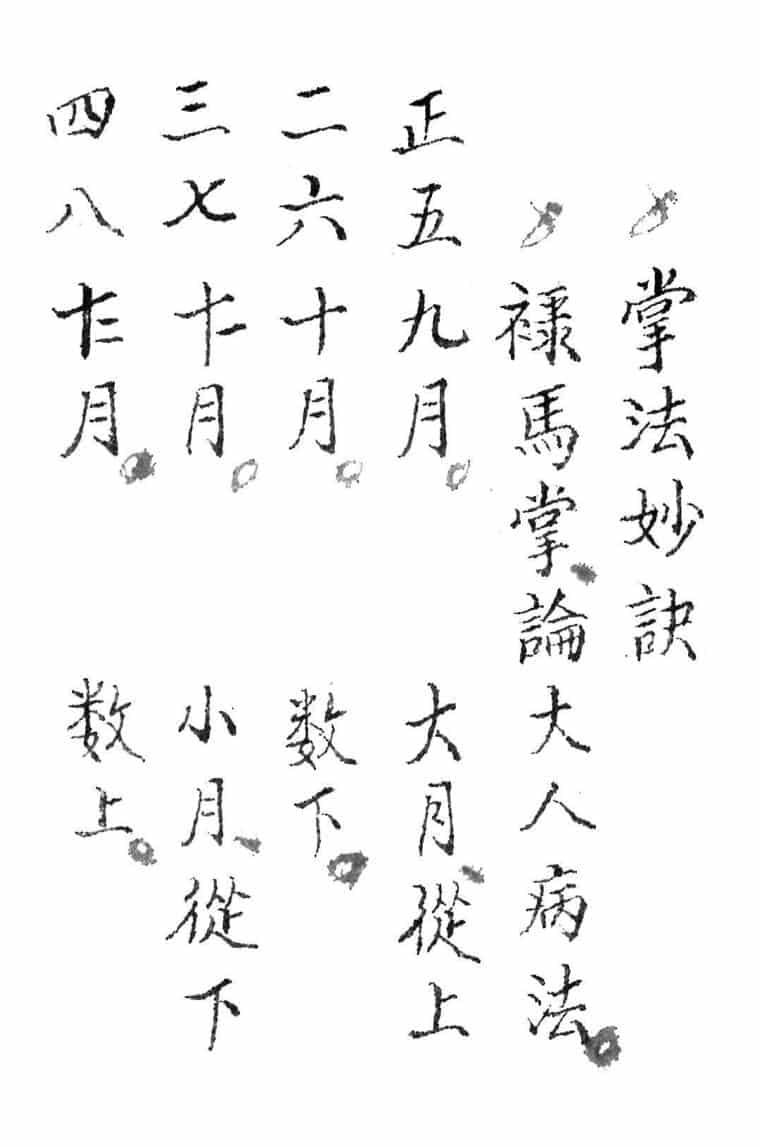 掌法妙訣
禄馬掌論大人病法
正五九月 大月從上
二六十月 数下
三七十一月 小月從下
四八十二月 数上